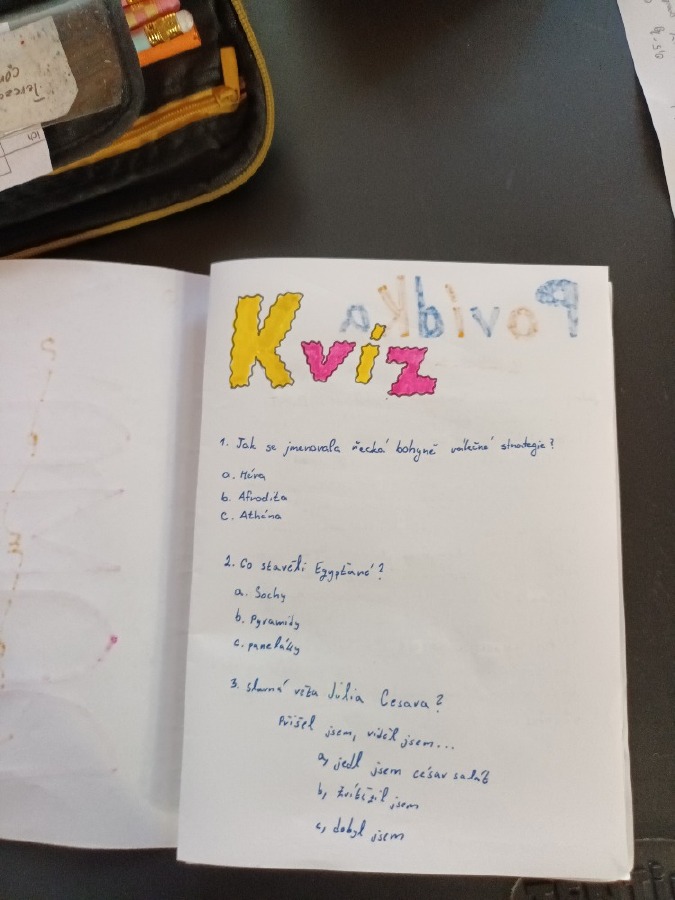 Povídka
Kvíz
1. Jak se jmenovala řecká bohyně válečné strategie?
a. Héra
b. Afrodita
c. Athéna
2. Co stavěli Egypťané?
a. Sochy
b. Pyramidy
c. paneláky
3. slavná věta Júlia Cesara?
Přišel jsem, viděl jsem...
a, jedl jsem césar salát
b, zvítězil jsem
c, dobyl jsem